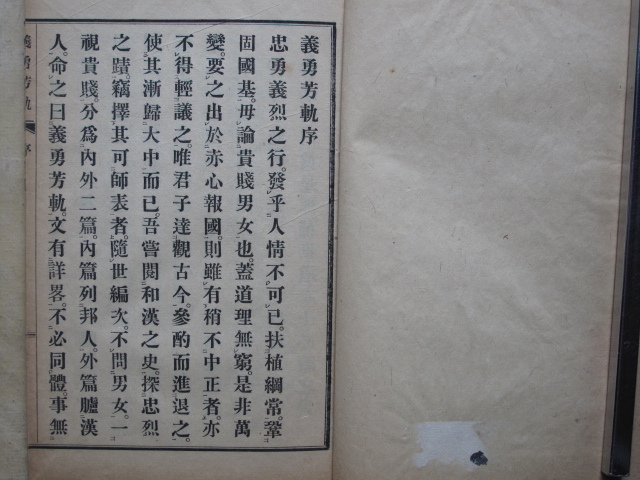 義勇芳軌序
忠勇義烈之行。發乎人情不可已。扶植綱常。鞏
固國基。毋論貴賤男女也。蓋道理無窮。是非萬
變。要之出於赤心報國。則雖有稍不中正者。亦
不得輕議之。唯君子達觀古今。參酌而進退之。
使其漸歸大中而已。吾嘗閱和漢之史。探忠烈
之蹟。竊擇其可師表者。隨世編次。不問男女。一
視貴賤。分爲內外二篇。內篇列邦人。外篇臚漢
人。命之曰義勇芳軌。文有詳畧。不必同體。事無
義勇芳軌
序